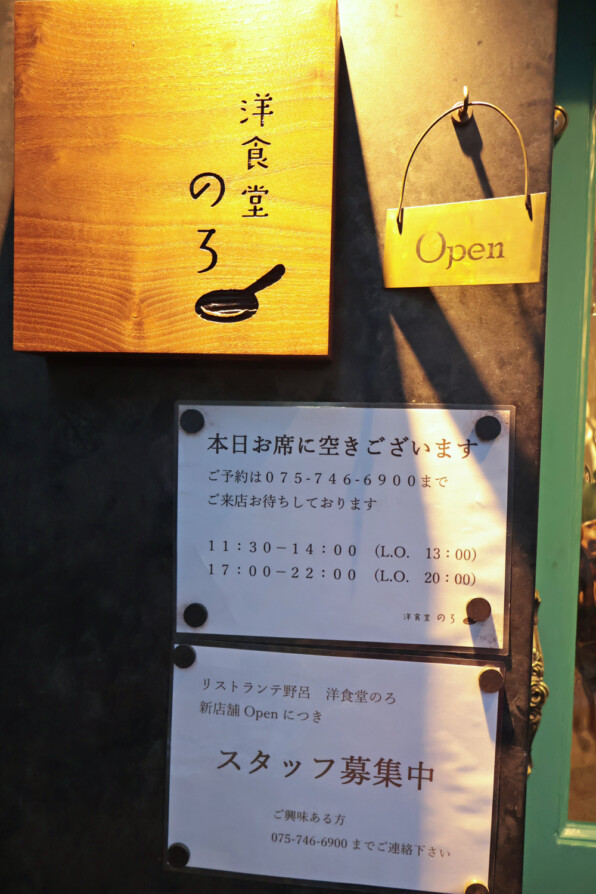 洋食堂
のろ
Open
本日お席に空きございます
ご予約は075-746-6900まで
ご来店お待ちしております
11:30－14:00 （L.O. 13:00）
17:00－22:00 （L.O. 20:00）
洋食堂 のろ
リストランテ野呂 洋食堂のろ
新店舗 Open につき
スタッフ募集中
ご興味ある方
075-746-6900 までご連絡下さい